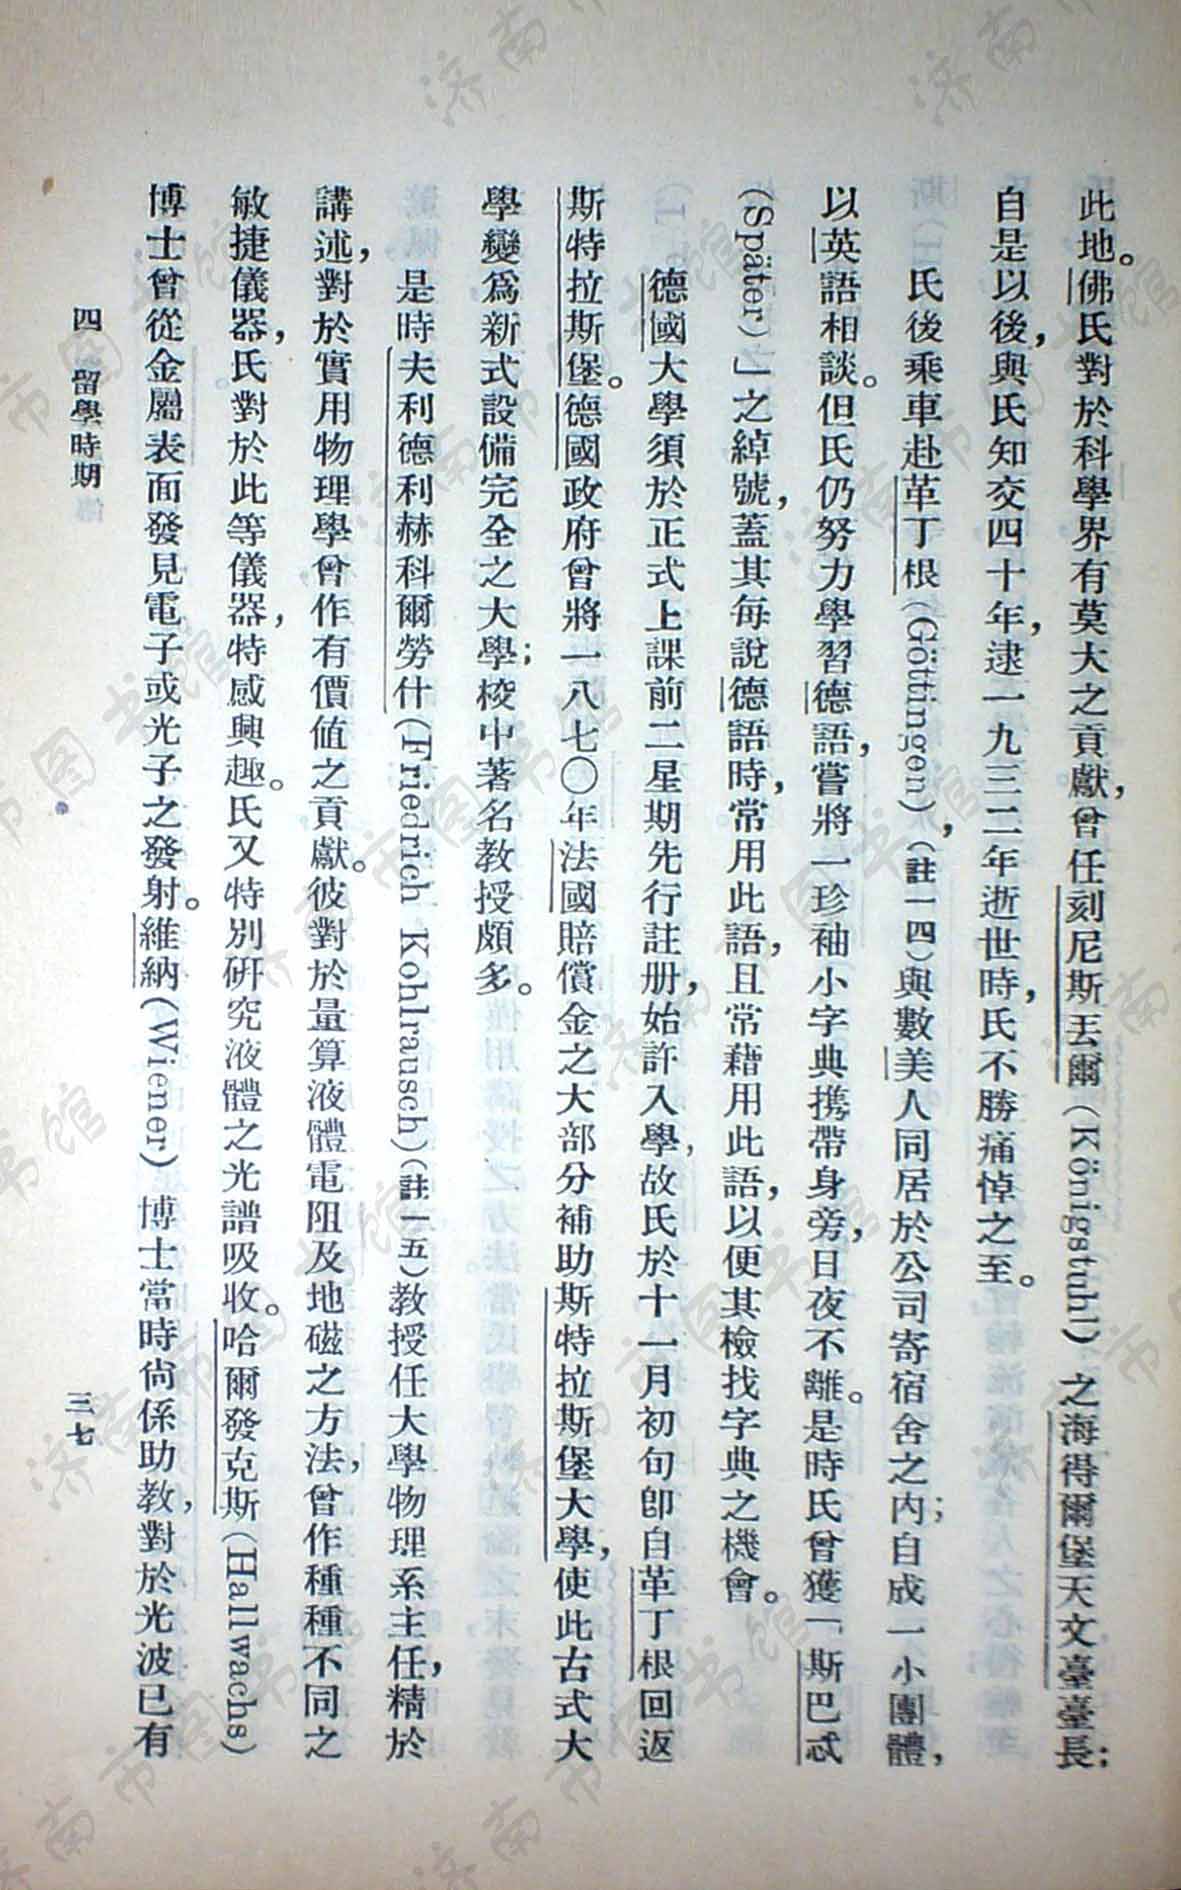 此地。佛氏對於科學界有莫大之貢獻，曾任刻尼斯丟爾（Königstuhl）之海得爾堡天文臺臺長；
自是以後，與氏知交四十年，逮一九三二年逝世時，氏不勝痛悼之至。
氏後乘車赴革丁根（Göttingen），（註一四）與數美人同居於公司寄宿舍之內；自成一小團體，
以英語相談。但氏仍努力學習德語，嘗將一珍袖小字典攜帶身旁，日夜不離。是時氏曾獲「斯巴忒
（Später）」之綽號，蓋其每說德語時，常用此語，且常藉用此語，以便其檢找字典之機會。
德國大學須於正式上課前二星期先行註册，始許入學，故氏於十一月初旬卽自革丁根回返
斯特拉斯堡。德國政府曾將一八七〇年法國賠償金之大部分補助斯特拉斯堡大學，使此古式大
學變爲新式設備完全之大學；校中著名教授頗多。
是時夫利德利赫科爾勞什（Friedrich Kohlrausch）（註一五）教授任大學物理系主任，精於
講述，對於實用物理學曾作有價值之貢獻。彼對於量算液體電阻及地磁之方法，曾作種種不同之
敏捷儀器，氏對於此等儀器，特感興趣。氏又特別研究液體之光譜吸收。哈爾發克斯（Hallwachs）
博士曾從金屬表面發見電子或光子之發射。維納（Wiener）博士當時尚係助教，對於光波已有
四 留學時期
三七
济南市图书馆